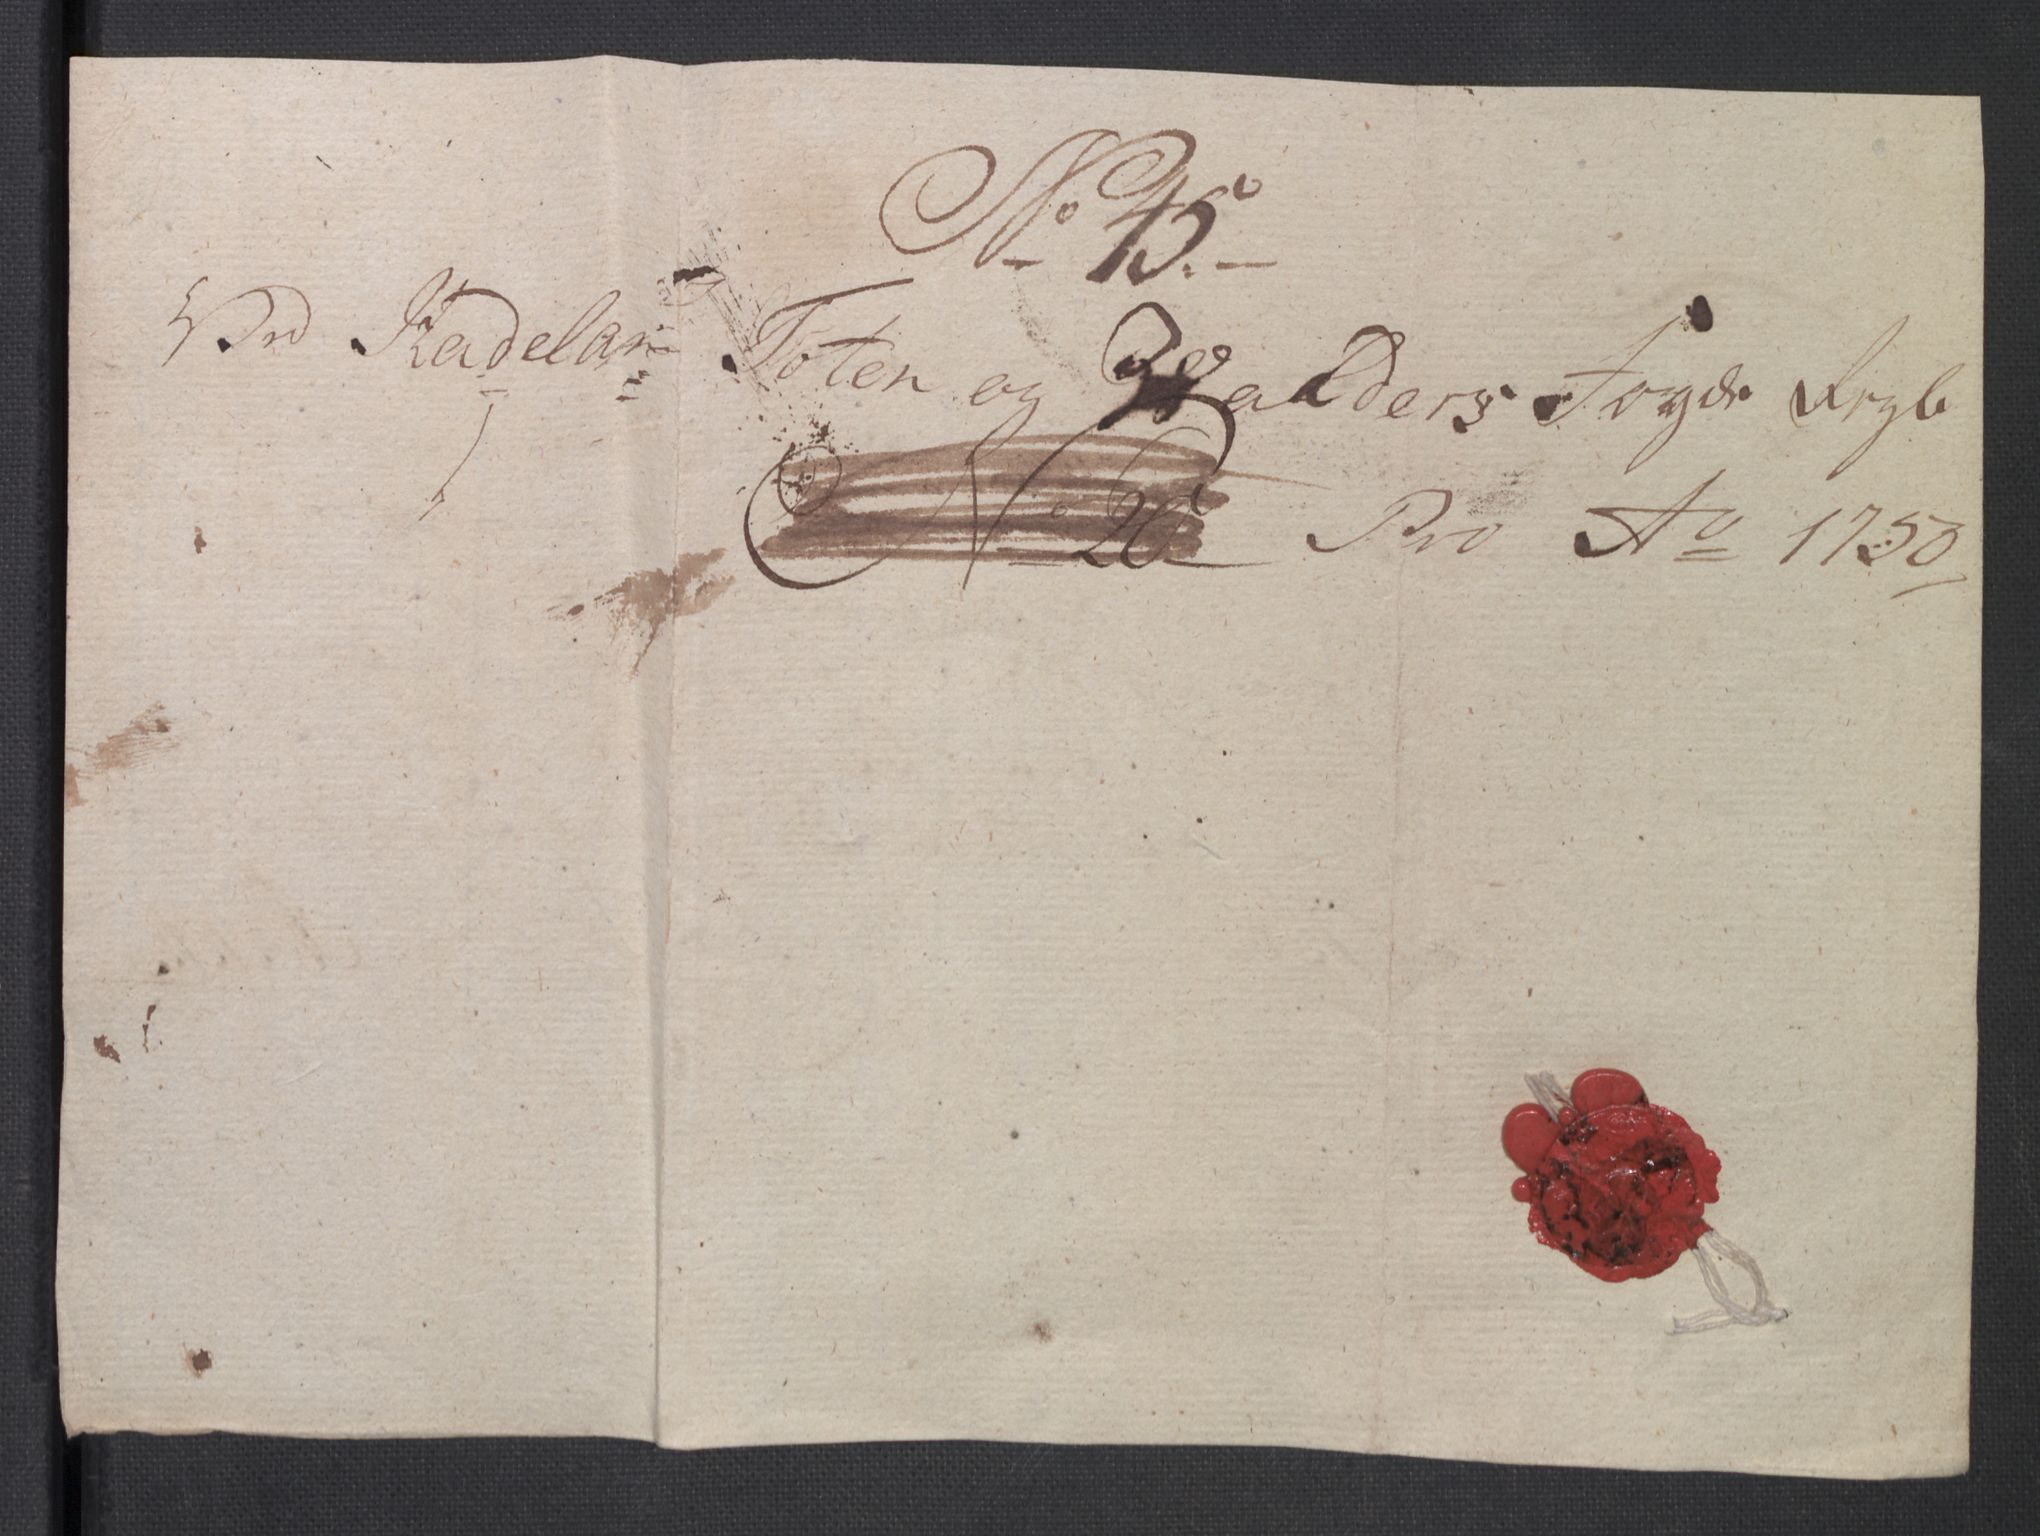 No 45.
Ved Hadelan Toten og Walders Fogde Regb
No 20 Pro Ao 1750